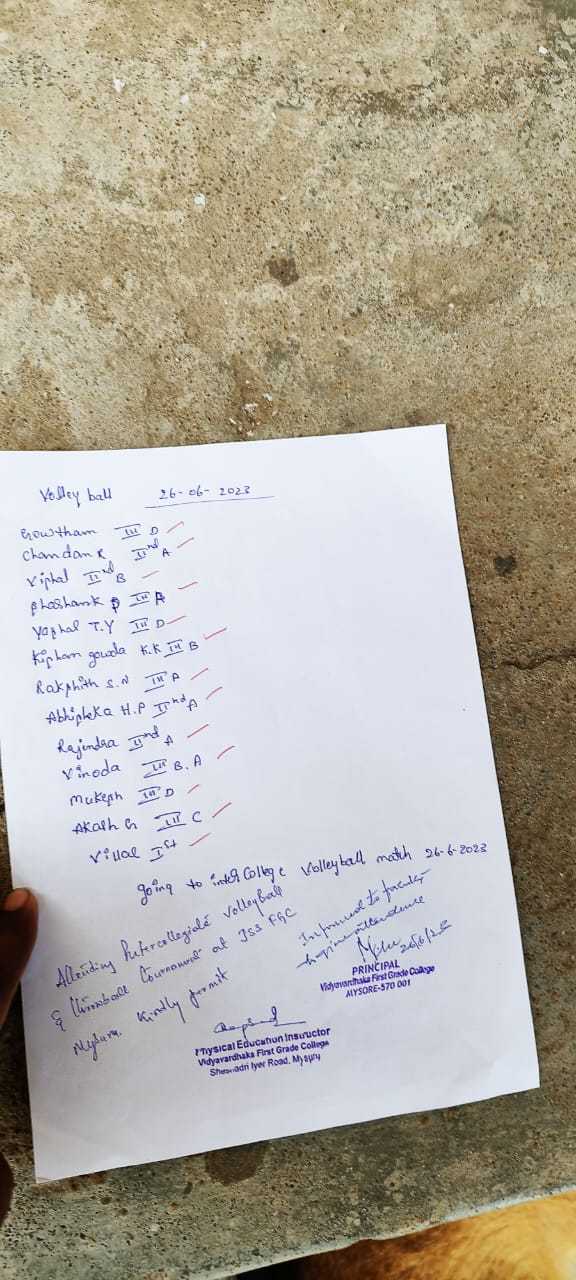 Volley ball 26-06-2023
Gowtham III D
Chandan R IInd A
Viphal IInd B
III A
Yaphal T.Y III D
Kipham gowda K.K III B
Rakphith S.N III A
Abhipheka H.P IInd A
Rajendra IInd A
Vinoda III B.A
Mukeph III D
Akash G III C
Vittal Ist
going to inter College Volleyball match 26-6-2023
Attending Intercollegiate Volleyball
& Throwball Tournament at JSS FGC
Mysuru. Kindly permit
Informed to faculty
attendance
26/6/23
PRINCIPAL
Vidyavardhaka First Grade College
MYSORE-570 001
Physical Education Instructor
Vidyavardhaka First Grade College
Sheshadri Iyer Road, Mysuru